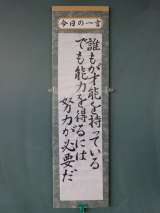 今日の一言
誰もが才能を持っている
でも能力を得るには
努力が必要だ